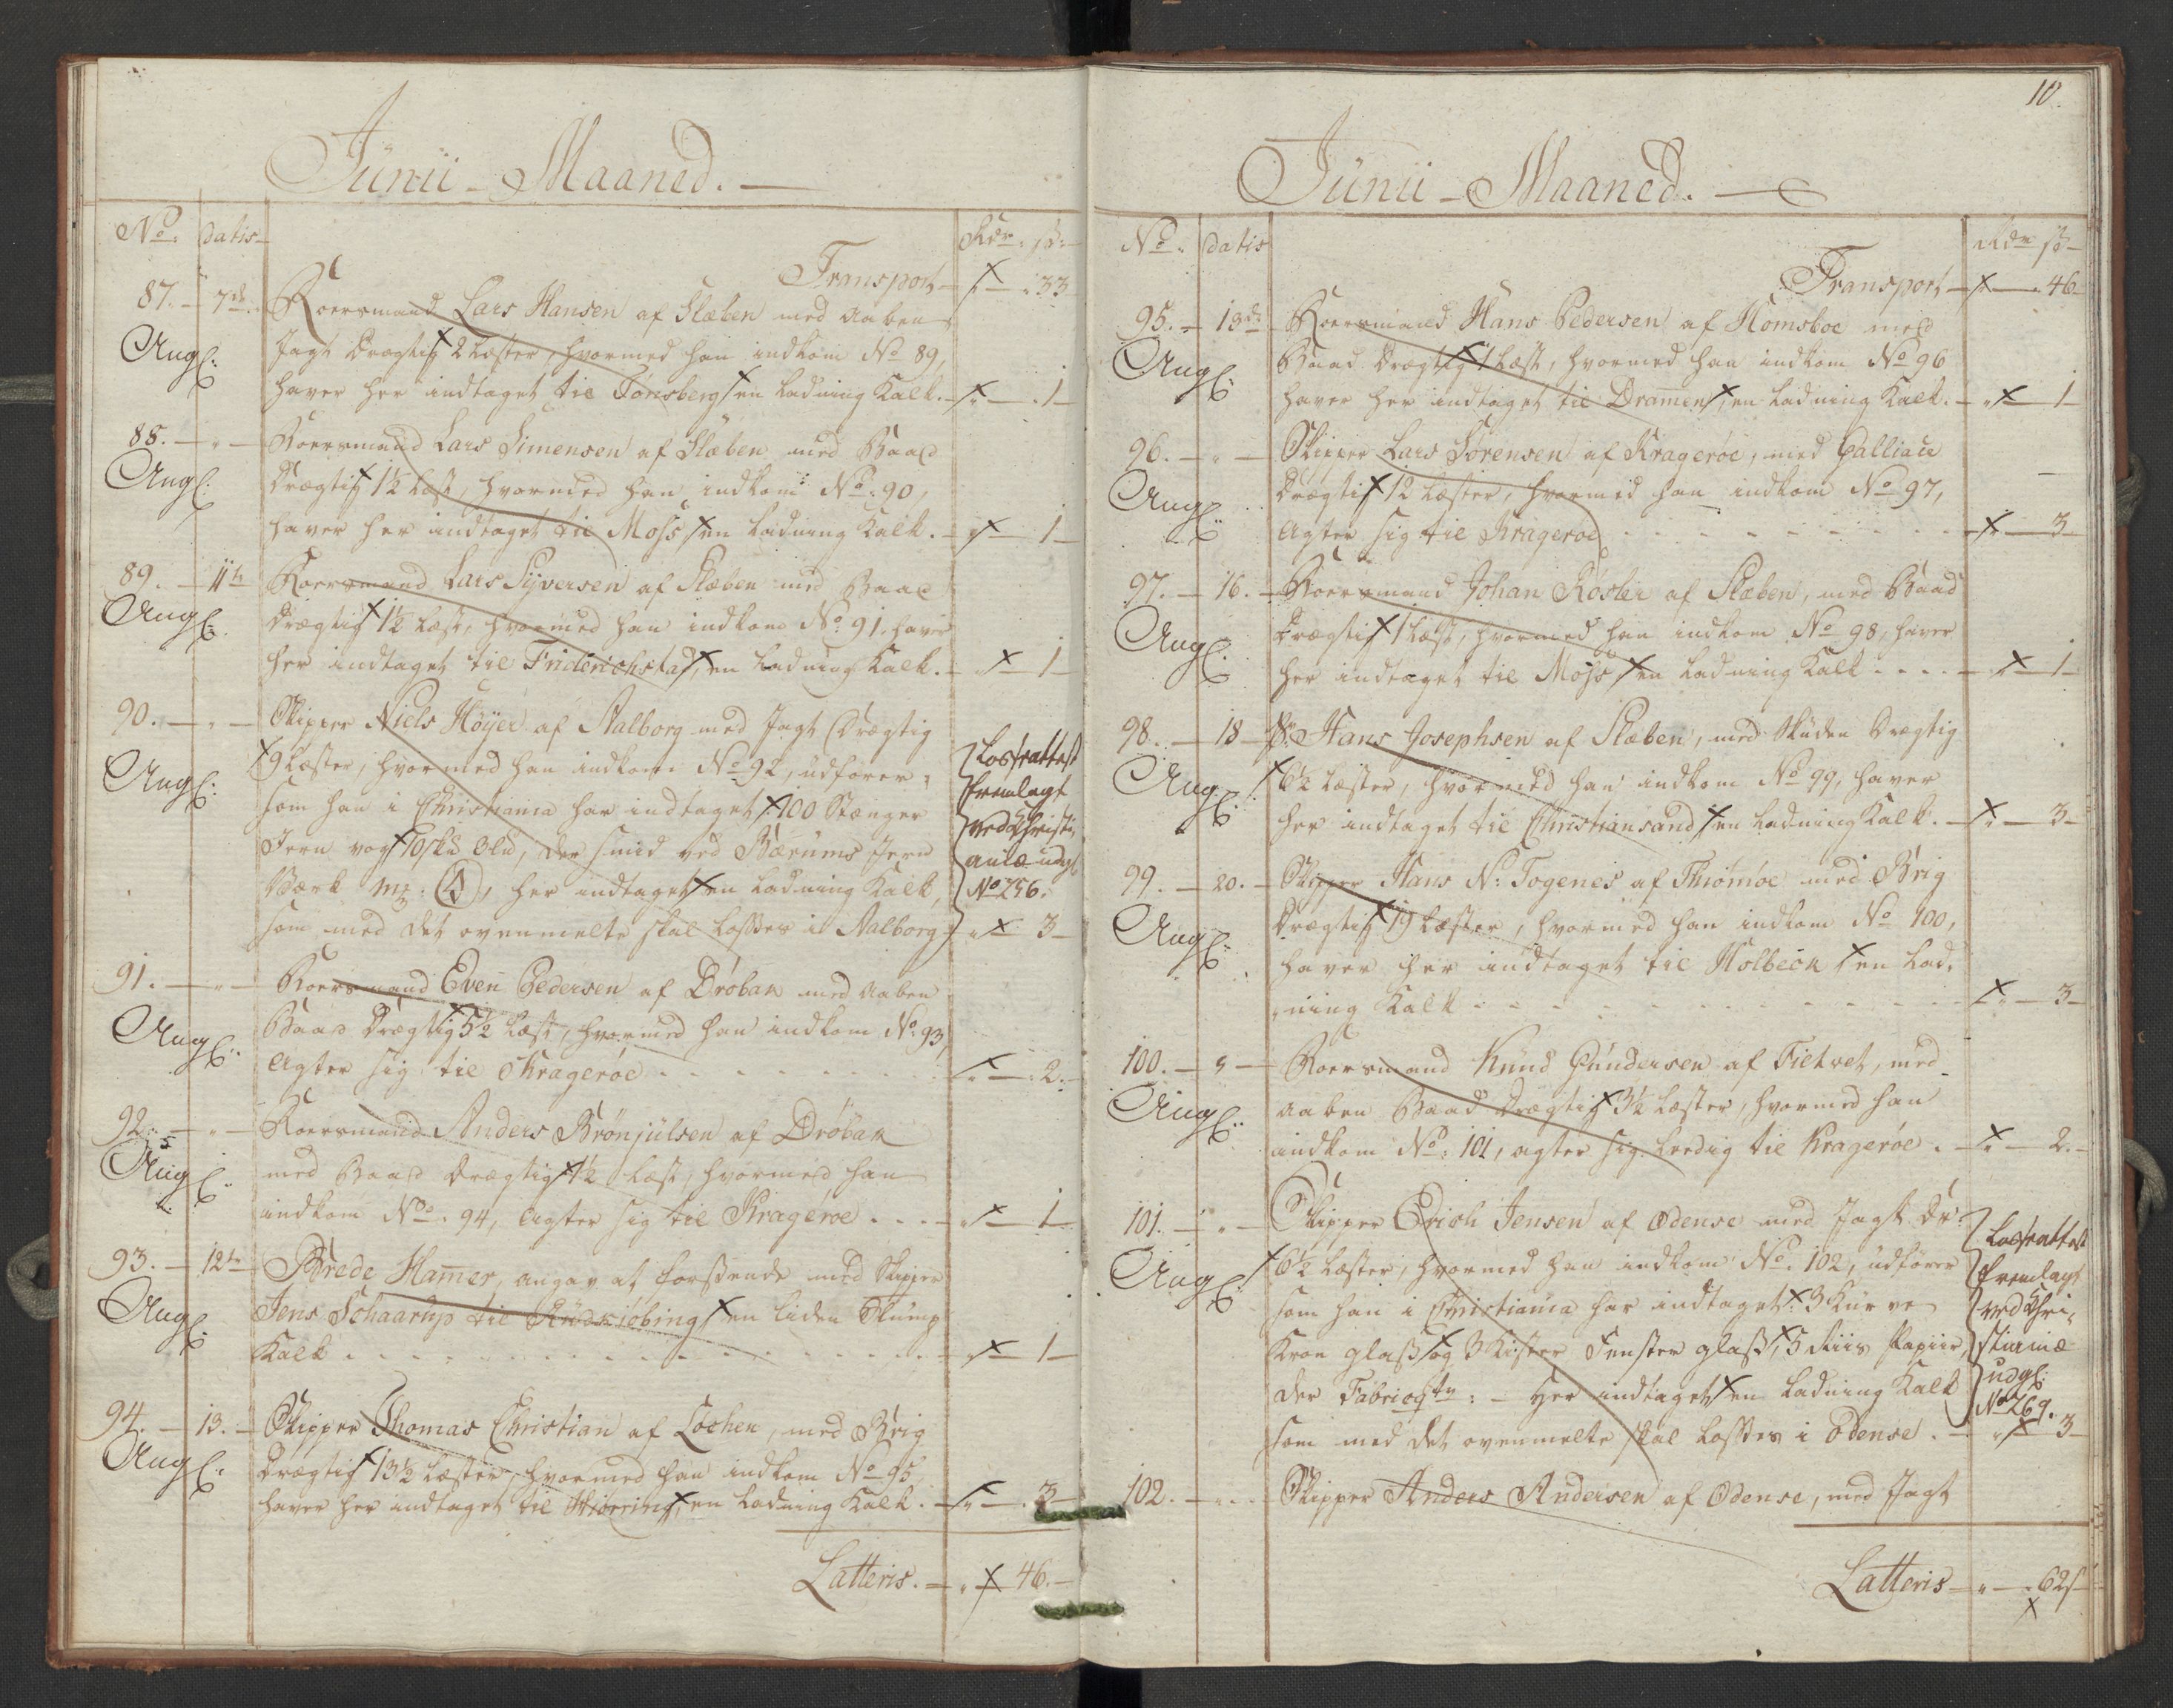 Junii Maaned.
No: datis Rdr: s:
Transport - " - 33
87. - 7de Roersmand Lars Hansen af Slæben med aaben
Angl: Jagt drægtig 2 læster, hvormed han indkom No 89,
haver her indtaget til Tønsberg en ladning Kalk. - " - 1 -
88. - " - Roersmand Lars Simensen af Slæben med Baad
Angl: drægtig 1½ læst, hvormed han indkom No: 90,
haver her indtaget til Moss en ladning Kalk. - " - 1 -
89. - 11te Roersmand Lars Syversen af Slæben med Baad
Angl: drægtig 1½ læst, hvormed han indkom No: 91, haver
her indtaget til Friderichstad, en ladning Kalk. - " - 1 -
90. - " - Skipper Niels Höyer af Aalborg med Jagt drægtig
Angl: 9 læster, hvormed han indkom No 92, udfører
som han i Christiania har indtaget 100 Stænger
Jern vog 10 skd , der smid ved Bærums Jern
Værk mz: her indtaget en ladning Kalk,
som med det ovenmelte skal losses i Aalborg - " - 3 -
Losseattest
fremlagt
ved Christi,
aniæ udgl
No 256.
91. - " - Roersmand Even Pedersen af Dröbak med aaben
Angl: Baad drægtig 5½ læst, hvormed han indkom No: 93,
agter sig til Krageröe - " - 2. -
92. - " - Roersmand Anders Brönjulsen af Dröbak
Angl: med Baad drægtig 1½ læst, hvormed han
indkom No. 94, agter sig til Krageröe. - " - 1 -
93. - 12te Brede Hamer, angav at forsende med Skipper
Angl: Jens Schaarup til Rudkiöbing en liden Slump
Kalk - " - 1 -
94. - 13. - Skipper Thomas Christian af Lochen, med Brig
Angl: drægtig 13½ læster, hvormed han indkom No 95,
haver her indtaget til Hiörring, en ladning Kalk. - " - 3 -
Latteris. - " - 46. -
10.
Junii Maaned.
No: datis Rdr s
Transport - " - 46 -
95. - 13de Roersmand Hans Pedersen af Homsboe med
Angl: Baad drægtig 1 læst, hvormed han indkom No 96
haver her indtaget til Dramen, en ladning Kalk. - " - 1 -
96. - " - Skipper Lars Sörensen af Krageröe, med Galliace
Angl: drægtig 12 læster, hvormed han indkom No 97,
agter sig til Krageröe - " - 3 -
97. - 16. - Roersmand Johan Rösler af Slæben, med Baad
Angl: drægtig 1 læst, hvormed han indkom No 98, haver
her indtaget til Moss en ladning Kalk - " - 1 -
98. - 18 - Sk: Hans Josephsen af Slæben, med Skuden drægtig
Angl: 6½ læster, hvormed han indkom No 99, haver
her indtaget til Christiansand en ladning Kalk. - " - 3 -
99. - 20. - Skipper Hans N: Togenes af Thromöe med Brig
Angl: drægtig 19 læster, hvormed han indkom No 100,
haver her indtaget til Holbeck en lad,
ning Kalk - " - 3 -
100. - " - Roersmand Knud Gundersen af Tietvet, med
Angl: aaben Baad drægtig 3½ læster, hvormed han
indkom No: 101, agter sig leedig til Krageröe. - " - 2. -
101. - " - Skipper Erich Jensen af Odense med Jagt dr:
Angl: 6½ læster, hvormed han indkom No. 102, udfører
som han i Christiania har indtaget 3 Kurve
Kron glass og 3 Kister Fenster glass, 3 Riis Papiir,
der Fabriqt: - her indtaget en ladning Kalk
som med det ovenmelte skal losses i Odense. - " - 3 -
Losseattest
fremlagt
ved Chri,
stianiæ
udgl:
No 269.
102. - " - Skipper Anders Andersen af Odense, med Jagt
Latteris - " - 62 s